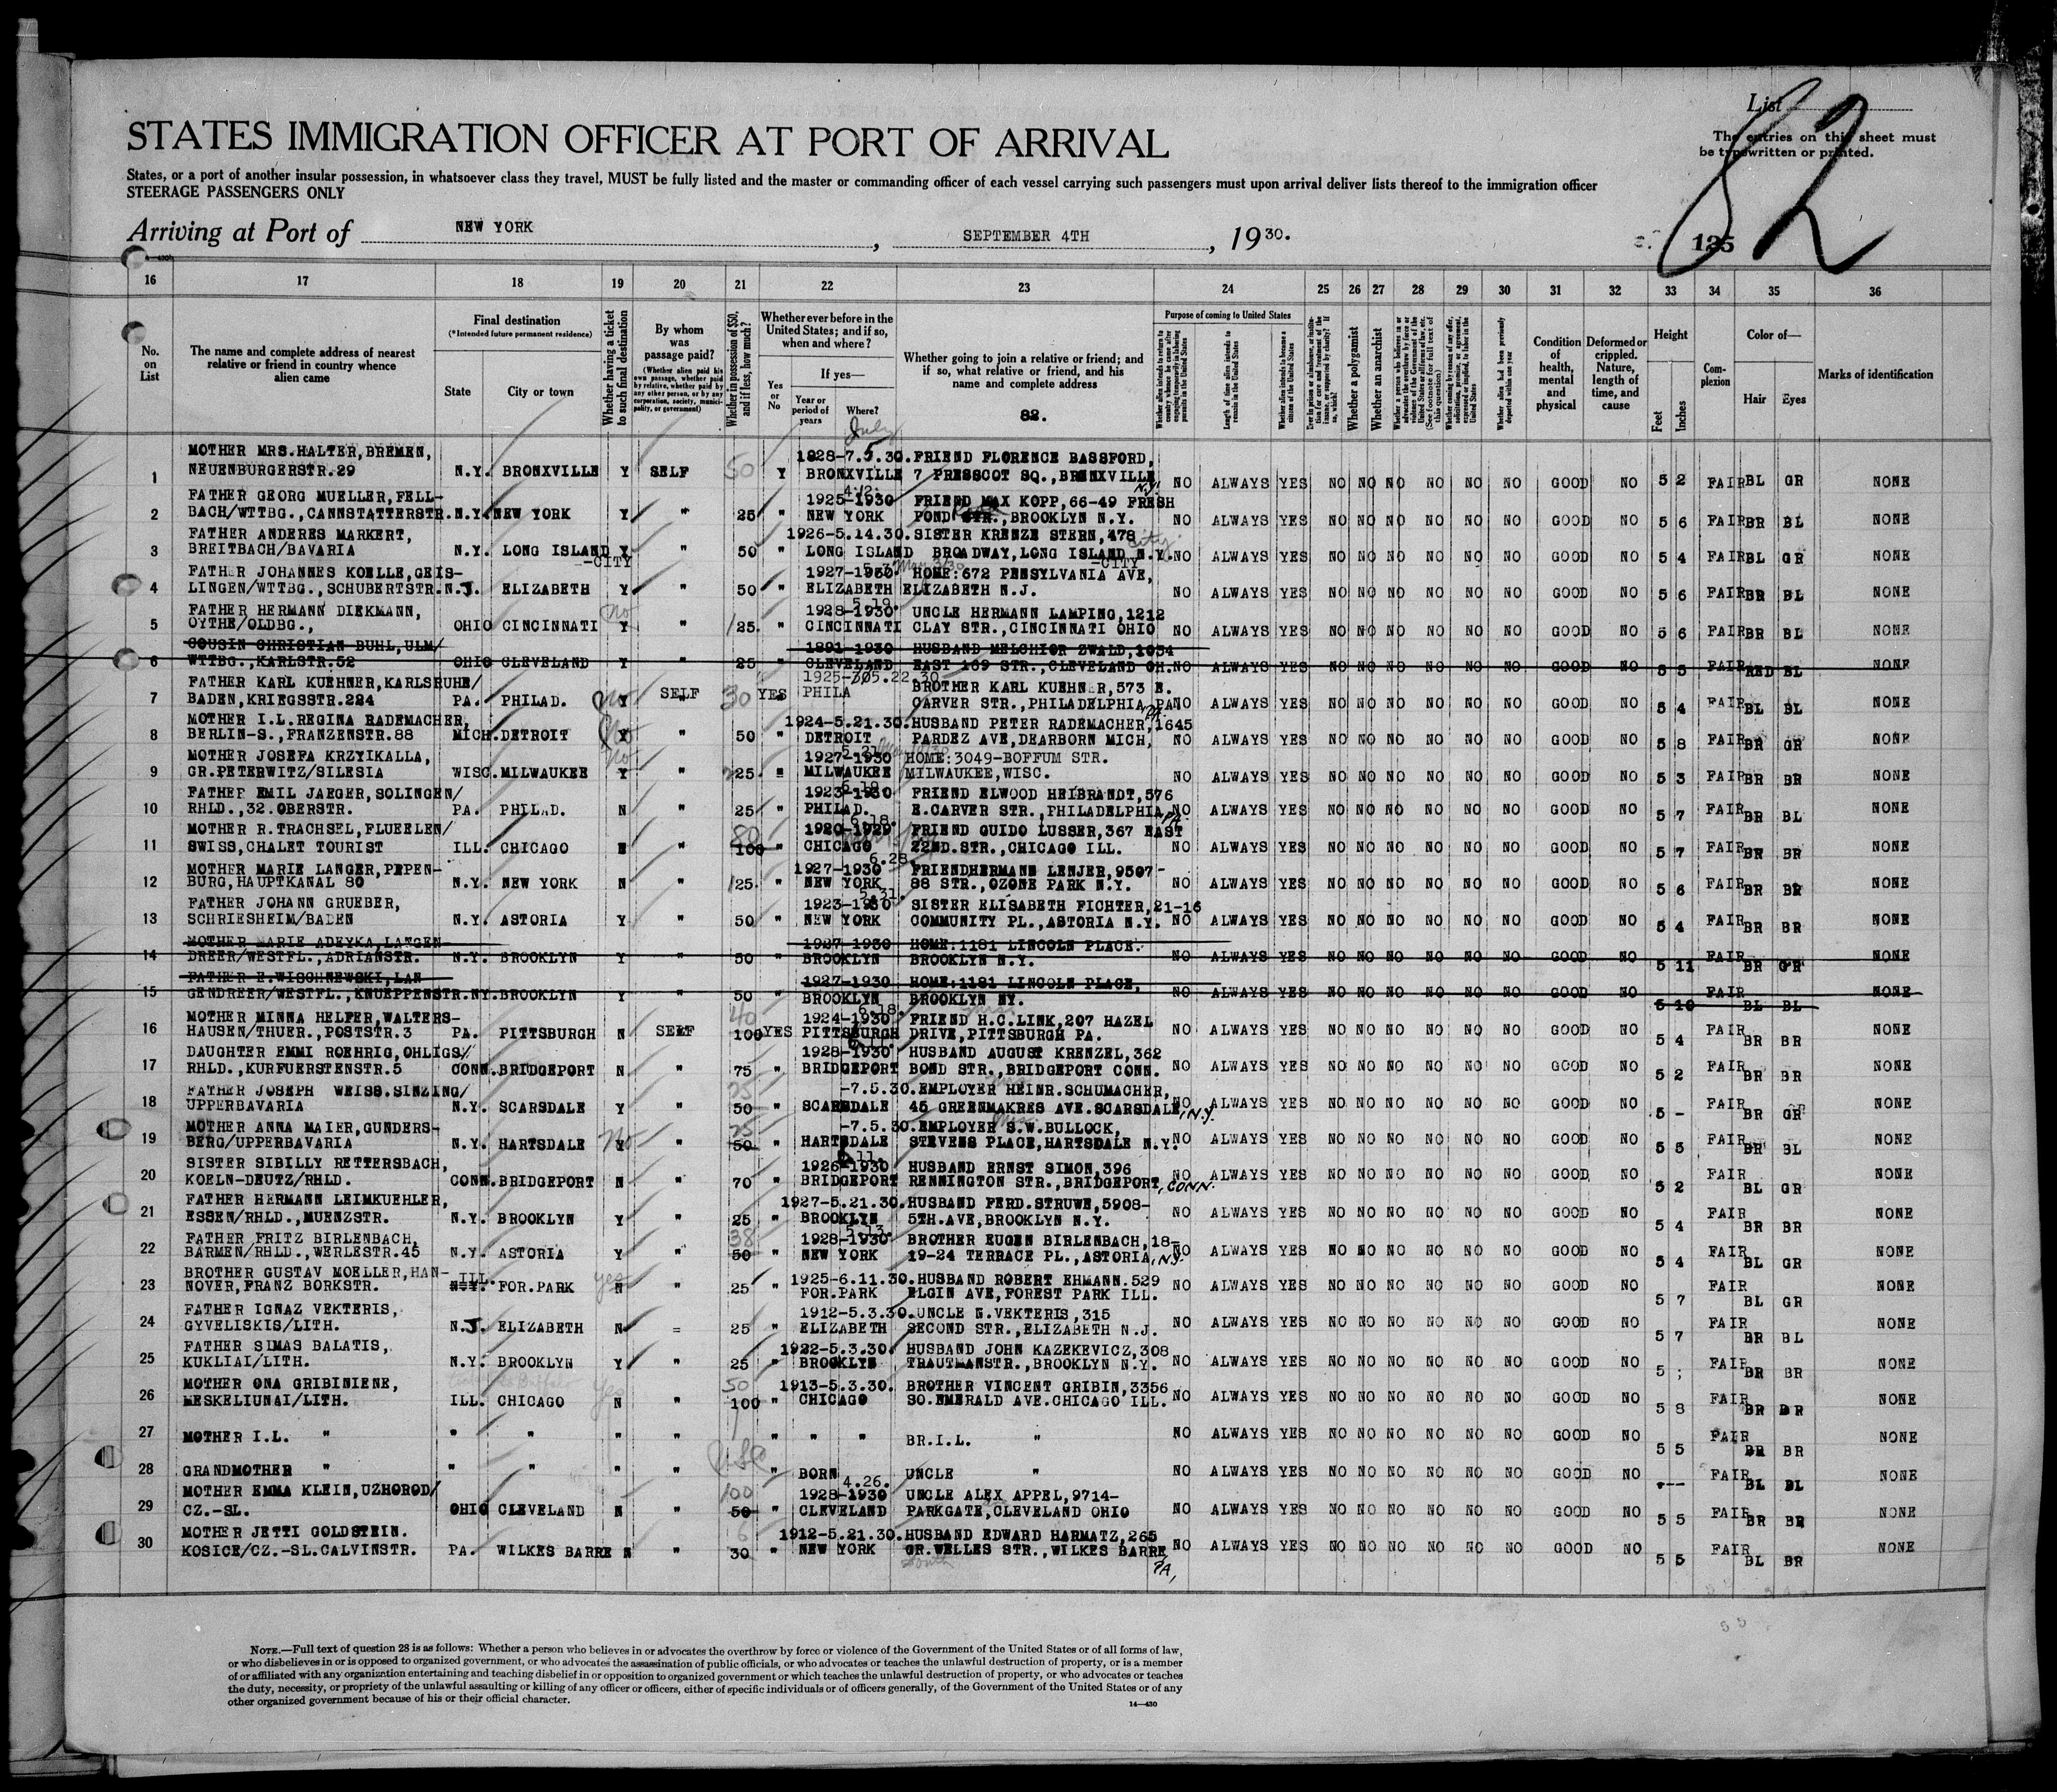 List
82
The entries on this sheet must
be typewritten or printed.
STATES IMMIGRATION OFFICER AT PORT OF ARRIVAL
States, or a port of another insular possession, in whatsoever class they travel, MUST be fully listed and the master or commanding officer of each vessel carrying such passengers must upon arrival deliver lists thereof to the immigration officer
STEERAGE PASSENGERS ONLY
Arriving at Port of NEW YORK, SEPTEMBER 4TH, 1930.
125
16 17 18 19 20 21 22 23 24 25 26 27 28 29 30 31 32 33 34 35 36
No. on List
The name and complete address of nearest relative or friend in country whence alien came
Final destination
(*Intended future permanent residence)
State
City or town
Whether having a ticket to such final destination
By whom was passage paid?
(Whether alien paid his own passage, whether paid by relative, whether paid by any other person, or by any corporation, society, municipality, or government)
Whether in possession of $50, and if less, how much?
Whether ever before in the United States; and if so, when and where?
Yes or No
If yes—
Year or period of years
Where?
Whether going to join a relative or friend; and if so, what relative or friend, and his name and complete address
82.
Purpose of coming to United States
Length of time alien intends to remain in the United States
Whether alien intends to become a citizen of the United States
Whether a polygamist
Whether an anarchist
Condition of health, mental and physical
Deformed or crippled. Nature, length of time, and cause
Height
Feet
Inches
Complexion
Color of—
Hair
Eyes
Marks of identification
July
MOTHER MRS.HALTER,BREMEN, 1928-7.5.30. FRIEND FLORENCE BASSFORD,
1 NEUENBURGERSTR.29 N.Y. BRONXVILLE Y SELF 50 Y BRONXVILLE 7 PRESSCOT SQ.,BRONXVILLE N.Y. NO ALWAYS YES NO NO NO NO NO NO GOOD NO 5 2 FAIR BL GR NONE
FATHER GEORG MUELLER,FELL- 4.12. 1925-1930 FRIEND MAX KOPP,66-49 FRESH
2 BACH/WTTBG.,CANNSTATTERSTR. N.Y. NEW YORK Y " 25 " NEW YORK POND STR.,BROOKLYN N.Y. NO ALWAYS YES NO NO NO NO NO NO GOOD NO 5 6 FAIR BR BL NONE
FATHER ANDERES MARKERT, 1926-5.14.30. SISTER KRENZE STERN,478
3 BREITBACH/BAVARIA N.Y. LONG ISLAND -CITY Y " 50 " LONG ISLAND BROADWAY,LONG ISLAND N.Y. -CITY NO ALWAYS YES NO NO NO NO NO NO GOOD NO 5 4 FAIR BL GR NONE
FATHER JOHANNES KOELLE,GEIS- 1927-1930 HOME:672 PENSYLVANIA AVE,
4 LINGEN/WTTBG.,SCHUBERTSTR. N.J. ELIZABETH Y " 50 " ELIZABETH ELIZABETH N.J. NO ALWAYS YES NO NO NO NO NO NO GOOD NO 5 6 FAIR BR BL NONE
FATHER HERMANN DIEKMANN, 5.19. 1928-1930 UNCLE HERMANN LAMPING,1212
5 OYTHE/OLDBG., OHIO CINCINNATI no Y " 25. " CINCINNATI CLAY STR.,CINCINNATI OHIO NO ALWAYS YES NO NO NO NO NO NO GOOD NO 5 6 FAIR BR BL NONE
COUSIN CHRISTIAN BUHL,ULM/ 1891-1930 HUSBAND MELCHIOR ZWALD,1034
6 WTTBG.,KARLSTR.52 OHIO CLEVELAND Y " 25 " CLEVELAND EAST 169 STR.,CLEVELAND OH. NO ALWAYS YES NO NO NO NO NO NO GOOD NO 5 5 FAIR RED BL NONE
FATHER KARL KUEHNER,KARLSRUHE/ 1925-305.22.30 BROTHER KARL KUEHNER,573 E.
7 BADEN,KRIEGSSTR.284 PA. PHILAD. no Y SELF 30 YES PHILA CARVER STR.,PHILADELPHIA PA. NO ALWAYS YES NO NO NO NO NO NO GOOD NO 5 4 FAIR BL BL NONE
MOTHER I.L.REGINA RADEMACHER, 1924-5.21.30. HUSBAND PETER RADEMACHER,1645
8 BERLIN-S.,FRANZENSTR.88 MICH. DETROIT no Y " 50 " DETROIT PARDEZ AVE,DEARBORN MICH, NO ALWAYS YES NO NO NO NO NO NO GOOD NO 5 8 FAIR BR GR NONE
MOTHER JOSEFA KRZYIKALLA, 5.21 1927-1930 HOME:3049-BOFFUM STR.
9 GR.PETERWITZ/SILESIA WISC. MILWAUKEE no Y " 25. " MILWAUKEE MILWAUKEE,WISC. NO ALWAYS YES NO NO NO NO NO NO GOOD NO 5 3 FAIR BR BR NONE
FATHER EMIL JAEGER,SOLINGEN/ 1923-1930 FRIEND ELWOOD HEIBRANDT,576
10 RHLD.,32.OBERSTR. PA. PHILAD. N " 25 " PHILAD. E.CARVER STR.,PHILADELPHIA,PA. NO ALWAYS YES NO NO NO NO NO NO GOOD NO 5 7 FAIR BR BL NONE
MOTHER R.TRACHSEL,FLUEELEN/ 6.18. 1920-1929 FRIEND GUIDO LUSSER,367 EAST
11 SWISS,CHALET TOURIST ILL. CHICAGO N " 80 100 " CHICAGO 22ND.STR.,CHICAGO ILL. NO ALWAYS YES NO NO NO NO NO NO GOOD NO 5 7 FAIR BR BR NONE
MOTHER MARIE LANGER,PEPEN- 6.28. 1927-1930 FRIENDHERMANN LENJER,9507-
12 BURG,HAUPTKANAL 80 N.Y. NEW YORK N " 25. " NEW YORK 88 STR.,OZONE PARK N.Y. NO ALWAYS YES NO NO NO NO NO NO GOOD NO 5 6 FAIR BR BR NONE
FATHER JOHANN GRUEBER, 5.31. 1923-1930 SISTER ELISABETH FICHTER,21-16
13 SCHRIESHEIM/BADEN N.Y. ASTORIA Y " 50 " NEW YORK COMMUNITY PL.,ASTORIA N.Y. NO ALWAYS YES NO NO NO NO NO NO GOOD NO 5 4 FAIR BR BR NONE
MOTHER MARIE ADEYKA,LANGEN- 1927-1930 HOME:1181 LINCOLN PLACE.
14 DREER/WESTFL.,ADRIANSTR. N.Y. BROOKLYN Y " 50 " BROOKLYN BROOKLYN N.Y. NO ALWAYS YES NO NO NO NO NO NO GOOD NO 5 11 FAIR BR GR NONE
FATHER E.WISCHNEWSKI,LAN- 1927-1930 HOME:1181 LINCOLN PLACE,
15 GENDREER/WESTFL.,KNUEPPENSTR. NY. BROOKLYN Y " 50 " BROOKLYN BROOKLYN NY. NO ALWAYS YES NO NO NO NO NO NO GOOD NO 5 10 FAIR BL BL NONE
MOTHER MINNA HELFER,WALTERS- 6.18. 1924-1930 FRIEND H.C.LINK,207 HAZEL
16 HAUSEN/THUER.,POSTSTR.3 PA. PITTSBURGH N SELF 40 100 YES PITTSBURGH DRIVE,PITTSBURGH PA. NO ALWAYS YES NO NO NO NO NO NO GOOD NO 5 4 FAIR BR BR NONE
DAUGHTER EMMI ROEHRIG,OHLIGS/ 1928-1930 HUSBAND AUGUST KRENZEL,362
17 RHLD.,KURFUERSTENSTR.5 CONN. BRIDGEPORT N " 75 " BRIDGEPORT BOND STR.,BRIDGEPORT CONN. NO ALWAYS YES NO NO NO NO NO NO GOOD NO 5 2 FAIR BR BR NONE
FATHER JOSEPH WEISS.SINZING/ -7.5.30. EMPLOYER HEINR.SCHUMACHER,
18 UPPERBAVARIA N.Y. SCARSDALE Y " 50 " SCARSDALE 45 GREENMAKRES AVE.SCARSDALE,N.Y. NO ALWAYS YES NO NO NO NO NO NO GOOD NO 5 - FAIR BR GR NONE
MOTHER ANNA MAIER,GUNDERS- -7.5.30. EMPLOYER S.W.BULLOCK,
19 BERG/UPPERBAVARIA N.Y. HARTSDALE No Y " 50 " HARTSDALE STEVENS PLACE,HARTSDALE N.Y. NO ALWAYS YES NO NO NO NO NO NO GOOD NO 5 5 FAIR BR BL NONE
SISTER SIBILLY RETTERSBACH, 6.11. 1926-1930 HUSBAND ERNST SIMON,396
20 KOELN-DEUTZ/RHLD. CONN. BRIDGEPORT N " 70 " BRIDGEPORT RENNINGTON STR.,BRIDGEPORT,CONN. NO ALWAYS YES NO NO NO NO NO NO GOOD NO 5 2 FAIR BL GR NONE
FATHER HERMANN LEIMKUEHLER, 1927-5.21.30. HUSBAND FERD.STRUWE,5908-
21 ESSEN/RHLD.,MUENZSTR. N.Y. BROOKLYN Y " 25 " BROOKLYN 5TH.AVE,BROOKLYN N.Y. NO ALWAYS YES NO NO NO NO NO NO GOOD NO 5 4 FAIR BR BR NONE
FATHER FRITZ BIRLENBACH, 5.13. 1928-1930 BROTHER EUGEN BIRLENBACH,18-
22 BARMEN/RHLD.,WERLESTR.45 N.Y. ASTORIA Y " 38 50 " NEW YORK 19-24 TERRACE PL.,ASTORIA,N.Y. NO ALWAYS YES NO NO NO NO NO NO GOOD NO 5 4 FAIR BL GR NONE
BROTHER GUSTAV MOELLER,HAN- ILL. 1925-6.11.30. HUSBAND ROBERT EHMANN.529
23 NOVER,FRANZ BORKSTR. N.Y. FOR.PARK yes N " 25 " FOR.PARK ELGIN AVE,FOREST PARK ILL. NO ALWAYS YES NO NO NO NO NO NO GOOD NO 5 7 FAIR BL GR NONE
FATHER IGNAZ VEKTERIS, 1912-5.3.30. UNCLE N.VEKTERIS,315
24 GYVELISKIS/LITH. N.J. ELIZABETH N = 25 " ELIZABETH SECOND STR.,ELIZABETH N.J. NO ALWAYS YES NO NO NO NO NO NO GOOD NO 5 7 FAIR BR BL NONE
FATHER SIMAS BALATIS, 1922-5.3.30. HUSBAND JOHN KAZEKEVICZ,308
25 KUKLIAI/LITH. N.Y. BROOKLYN Y " 25 " BROOKLYN TRAUTMANSTR.,BROOKLYN N.Y. NO ALWAYS YES NO NO NO NO NO NO GOOD NO 5 ; FAIR BR BR NONE
MOTHER ONA GRIBINIENE, 1913-5.3.30. BROTHER VINCENT GRIBIN,3356
26 MESKELIUNAI/LITH. ILL. CHICAGO Yes N " 50 100 " CHICAGO SO.EMERALD AVE.CHICAGO ILL. NO ALWAYS YES NO NO NO NO NO NO GOOD NO 5 8 FAIR BR BR NONE
27 MOTHER I.L. " " " " " " " " BR.I.L. " NO ALWAYS YES NO NO NO NO NO NO GOOD NO 5 5 FAIR BR BR NONE
28 GRANDMOTHER " " " " " USC " BORN UNCLE " NO ALWAYS YES NO NO NO NO NO NO GOOD NO --- FAIR BL BL NONE
MOTHER EMMA KLEIN,UZHOROD/ 4.26. 1928-1930 UNCLE ALEX APPEL,9714-
29 CZ.-SL. OHIO CLEVELAND N " 100 50 " CLEVELAND PARKGATE,CLEVELAND OHIO NO ALWAYS YES NO NO NO NO NO NO GOOD NO 5 5 FAIR BR BR NONE
MOTHER JETTI GOLDSTEIN. 1912-5.21.30. HUSBAND EDWARD HARMATZ,265
30 KOSICE/CZ.-SL.CALVINSTR. PA. WILKES BARRE N " 30 " NEW YORK GR.WELLES STR.,WILKES BARRE PA, NO ALWAYS YES NO NO NO NO NO NO GOOD NO 5 5 FAIR BL BR NONE
South
NOTE.—Full text of question 28 is as follows: Whether a person who believes in or advocates the overthrow by force or violence of the Government of the United States or of all forms of law,
or who disbelieves in or is opposed to organized government, or who advocates the assassination of public officials, or who advocates or teaches the unlawful destruction of property, or is a member
of or affiliated with any organization entertaining and teaching disbelief in or opposition to organized government or which teaches the unlawful destruction of property, or who advocates or teaches
the duty, necessity, or propriety of the unlawful assaulting or killing of any officer or officers, either of specific individuals or of officers generally, of the Government of the United States or of any
other organized government because of his or their official character.
14—430